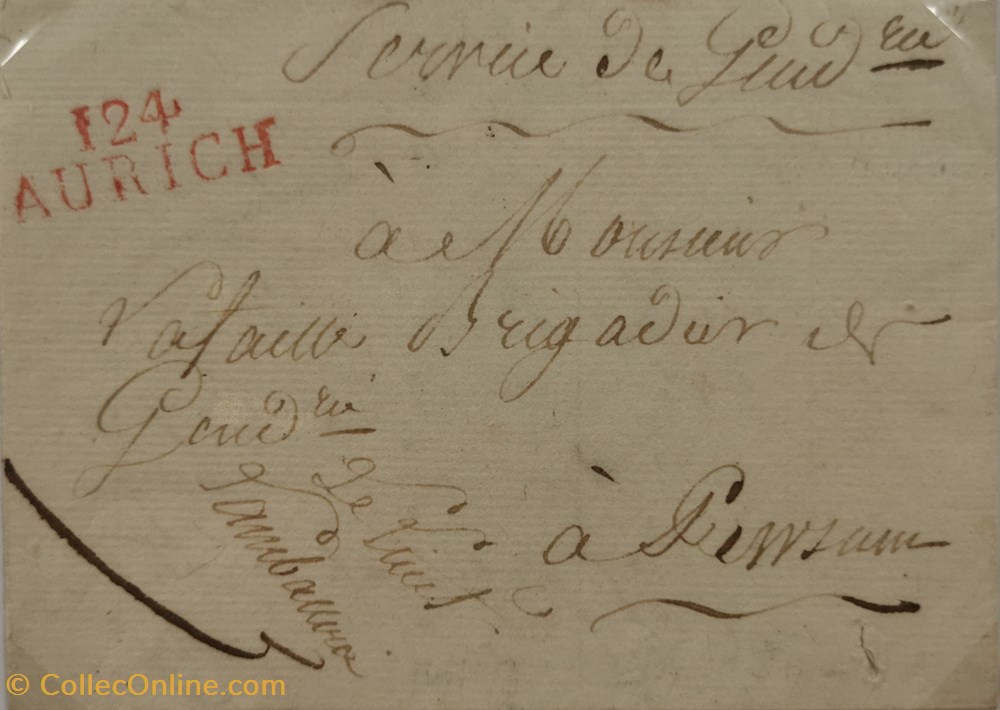 Service de Gend^rie
124
AURICH
à Monsieur
Brigadier de
Gend^rie
Le Lieut
à Pewsum
© CollecOnline.com